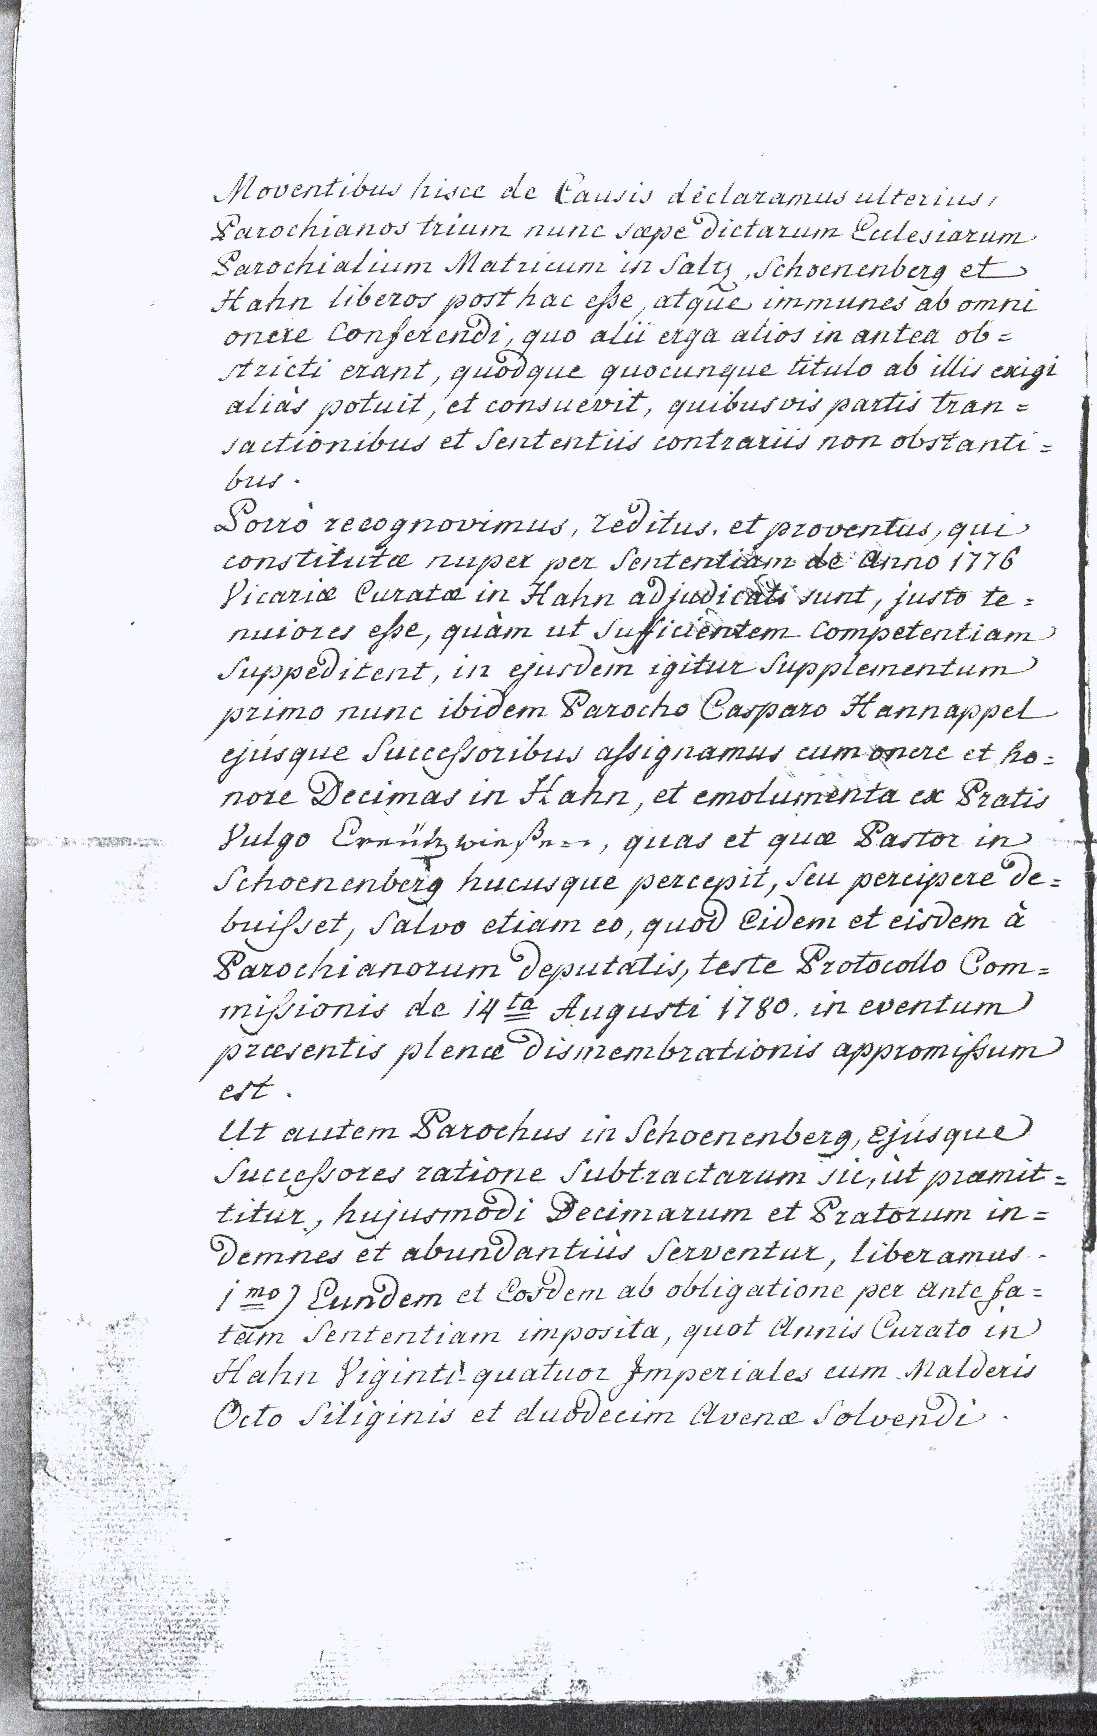 Moventibus hisce de Causis declaramus ulterius,
Parochianos trium nunc sæpe dictarum Eclesiarum
Parochialium Matricum in Saltz, Schoenenberg et
Hahn liberos post hac eſse, atque immunes ab omni
onere Conferendi, quo alii erga alios in antea ob=
stricti erant, quodque quocunque titulo ab illis exigi
aliàs potuit, et consuevit, quibusvis partis tran=
sactionibus et Sententiis contrariis non obstanti=
bus.
Porrò recognovimus, reditus, et proventus, qui
constitutæ nuper per Sententiam de Anno 1776
Vicariæ Curatæ in Hahn adjudicati sunt, justo te=
nuiores eſse, quàm ut Sufficientem Competentiam
Suppeditent, in ejusdem igitur Supplementum
primo nunc ibidem Parocho Casparo Hannappel
ejúsque Succeſsoribus aſsignamus cum onere et ho=
nore Decimas in Hahn, et emolumenta ex Pratis
Vulgo Creützwießen, quas et quæ Pastor in
Schoenenberg hucusque percepit, Seu percipere de=
buiſset, Salvo etiam eo, quod Eidem et eisdem à
Parochianorum deputatis, teste Protocollo Com=
miſsionis de 14ta Augusti 1780. in eventum
præsentis plenæ dismembrationis appromiſsum
est.
Ut autem Parochus in Schoenenberg, Ejúsque
Succeſsores ratione Subtractarum sic, ùt præmit=
titur, hujusmodi Decimarum et Pratorum in=
demnes et abundantiùs Serventur, liberamus
1mo) Eundem et Eosdem ab obligatione per antefa=
tam Sententiam imposita, quot Annis Curato in
Hahn Viginti quatuor Imperiales cum Malderis
Octo Siliginis et duodecim Avenæ Solvendi.